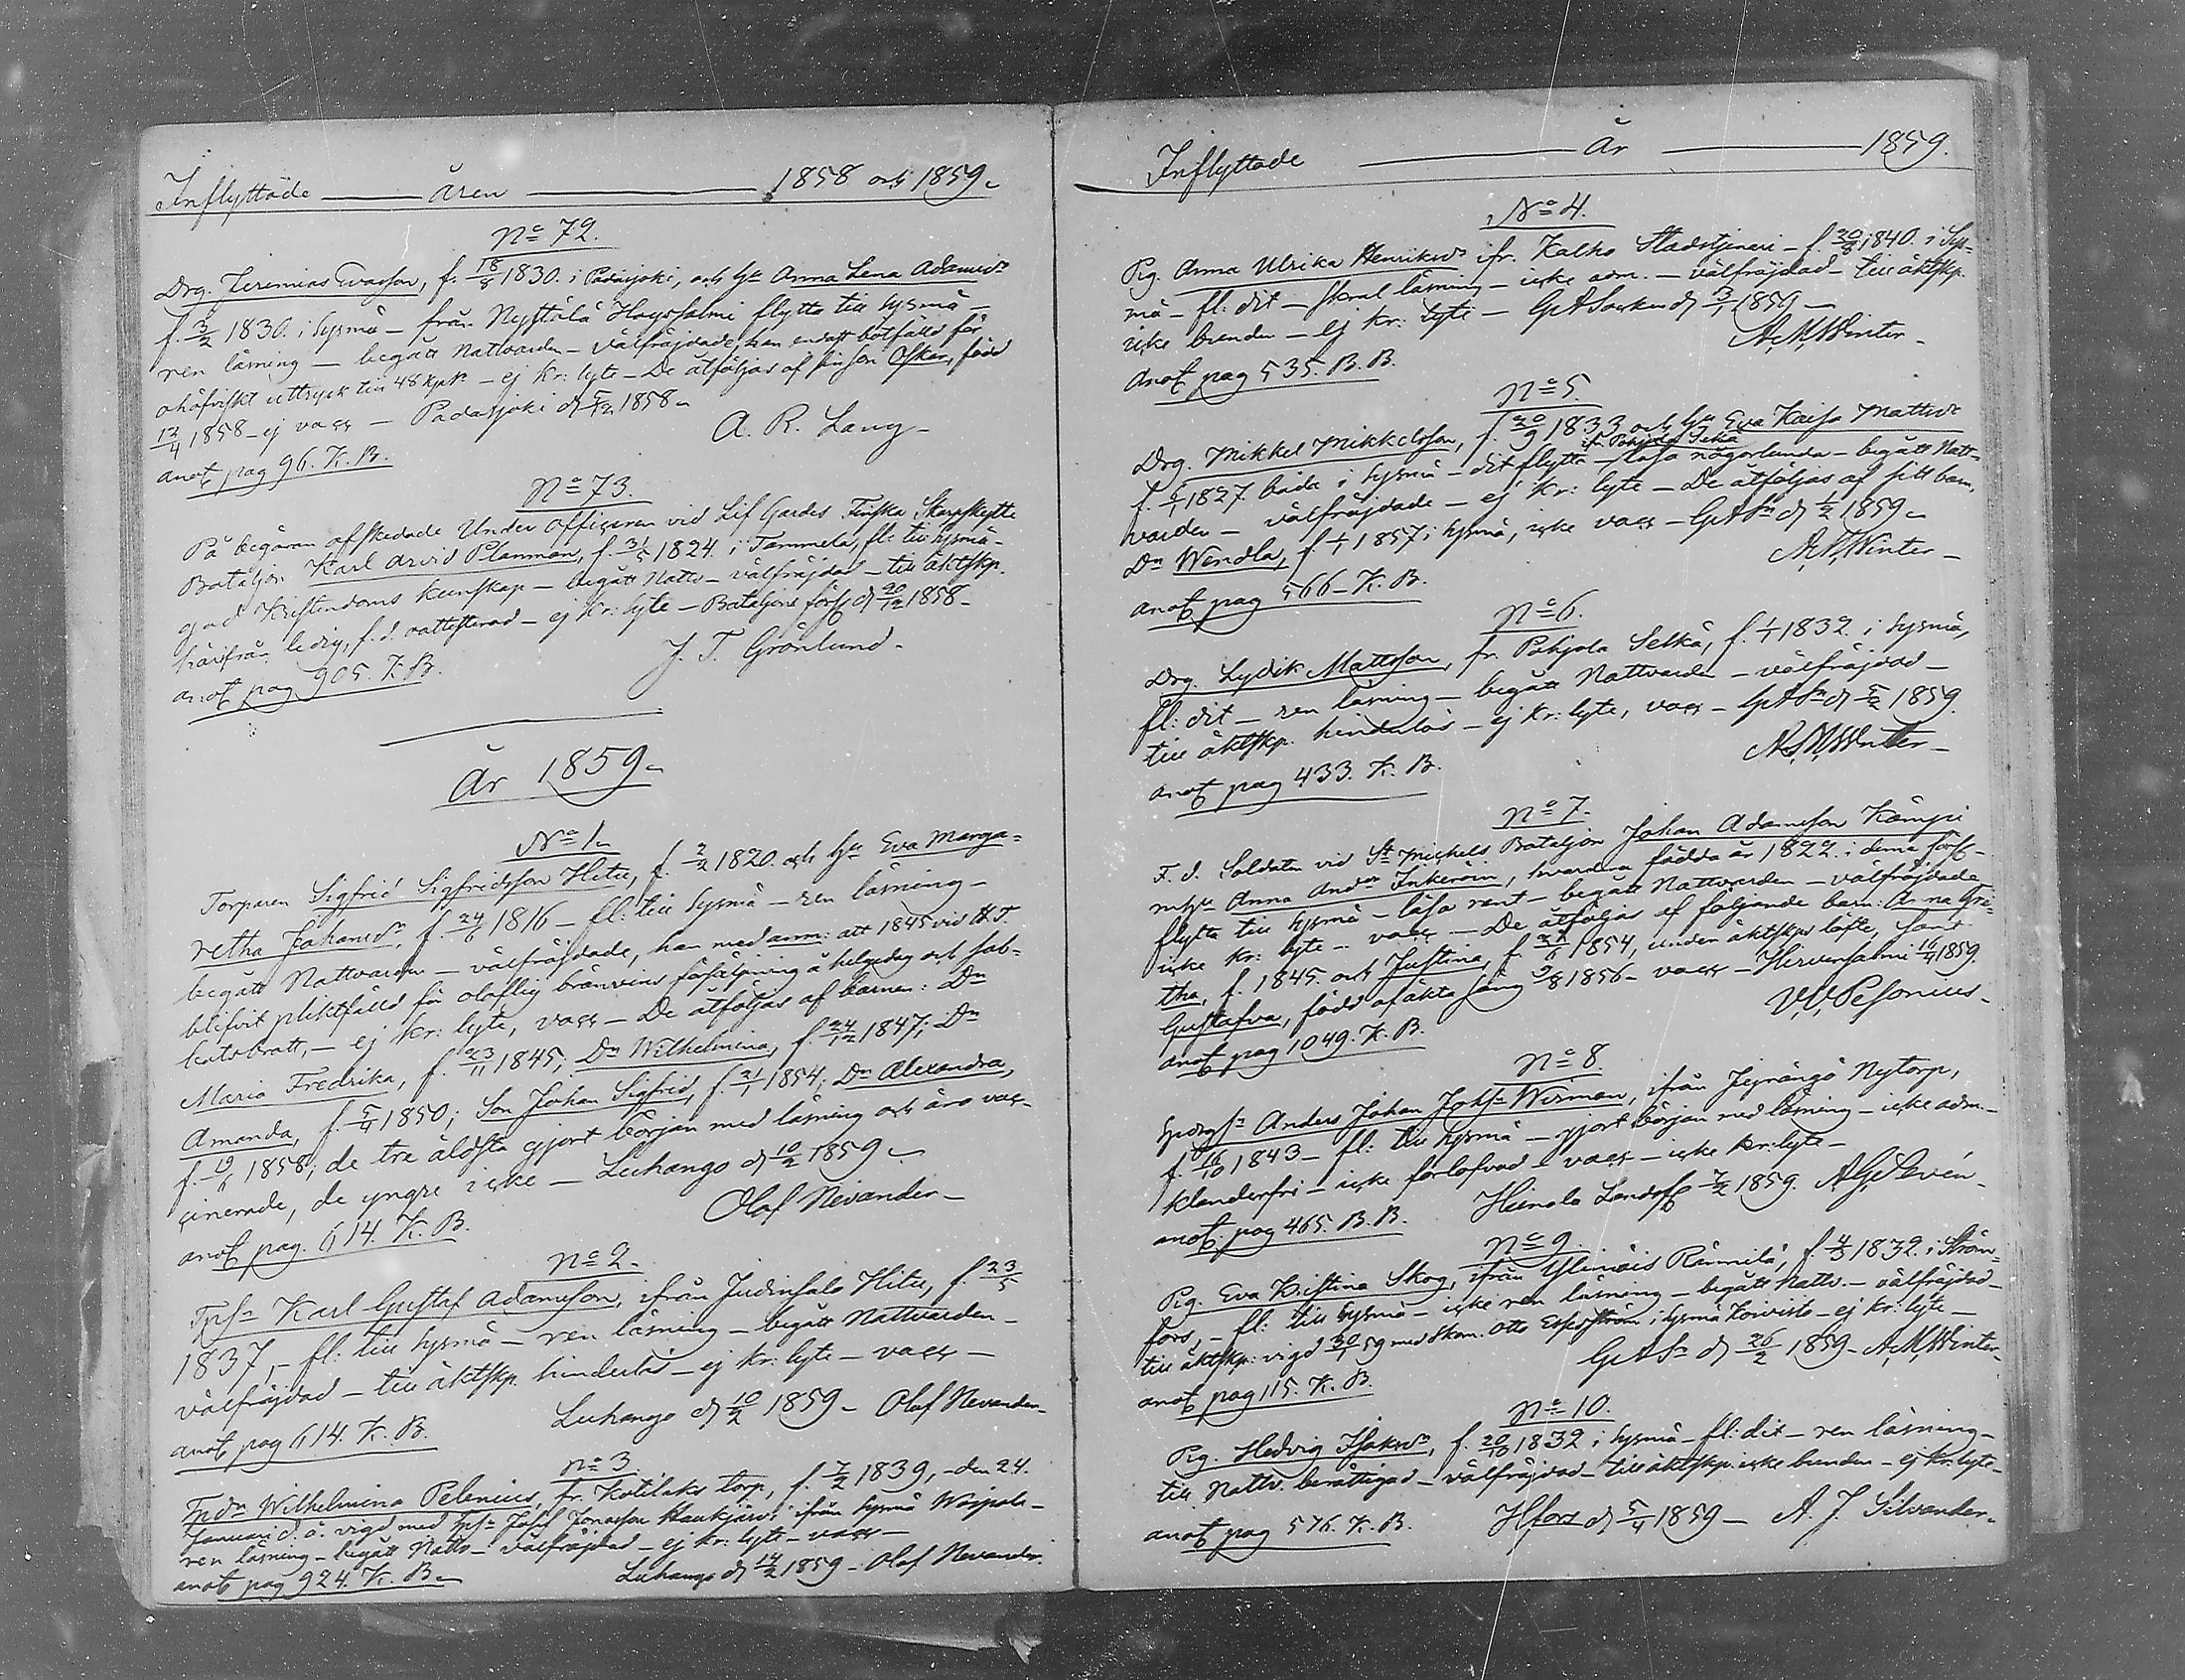 Inflyttade — åren — 1858 och 1859.
No 72.
Drg. Jeremias Evasson, f. 18/8 1830. i Padasjoki, och hu Anna Lena Adamsdr
f. 3/2 1830. i Sysmä — från Nystölä Hoyssalmi flytta till Sysmä —
ren läsning — begått Nattvarden — välfräjdade, han endast botfälld för
ohöfviskt uttryck till 48 kpkr — ej kr: lyte — De åtföljas af sin son Oskar, född
12/4 1858 — ej vacc — Padasjoki d 5/12 1858.
A. R. Lang.
anot pag 96. K. B.
No 73.
På begäran afskedade Under officeren vid Lif Gardes Finska Skarpskytte
Bataljon Karl Arvid Planman, f. 31/5 1824. i Tammela, fl: till Sysmä —
god Kristendoms kunskap — begått Nattv — välfräjdad — till äktskp.
härifrån ledig, f. d. vattesterad — ej kr: lyte — Bataljons förs d 20/12 1858 —
J. T. Grönlund.
anot pag 905. K. B.
År 1859.
No 1.
Torparen Sigfrid Sigfridsson Hitu, f. 2/2 1820. och hu Eva Marga=
retha Johansdr, f. 24/6 1816 — fl: till Sysmä — ren läsning —
begått Nattvarden — välfräjdade, han med anm: att 1845 vid H. T.
blifvit pliktfälld för olaflig bränvins försäljning å helgedag och sab=
batsbrott, — ej kr: lyte, vacc — De åtföljas af barnen: Dn
Maria Fredrika, f. 23/11 1845; Dn Wilhelmina, f. 24/12 1847; Dn
Amanda, f. 5/4 1850; Son Johan Sigfrid, f. 21/1 1854; Dn Alexandra,
f. 19/6 1858; de tre äldsta gjort början med läsning och äro vac-
cinerade, de yngre icke — Luhango d 10/2 1859.
Olof Nevander —
anot pag. 614. K. B.
No 2.
Tpsn Karl Gustaf Adamsson, ifrån Judinsalo Hitu, f. 23/5
1837, — fl: till Sysmä — ren läsning — begått Nattvarden —
välfräjdad — till äktskp. hinderlös — ej kr: lyte — vacc —
anot pag 614. K. B. Luhango d 10/2 1859 — Olof Nevander.
No 3.
Tpdn Wilhelmina Pelenius, fr. Kotilaks torp, f. 7/2 1839, — den 24.
Januari d. å. vigd med Josef Jonasson Haukjärvi ifrån Sysmä Woipala —
ren läsning — begått Nattv — välfräjdad — ej kr: lyte — vacc —
anot pag 924. K. B. Luhango d 14/2 1859 — Olof Nevander.
Inflyttade — År — 1859.
No 4.
Pig. Anna Ulrika Henriksdr ifr. Kalho Stadstjeneri — f. 20/8 1840. i Sys=
mä — fl: dit — svral läsning — icke adm. — välfräjdad — till äktskp.
icke bunden — ej kr: lyte — GA Socken d 3/1 1859 —
A. M. Winter —
Anot pag 535. B. B.
No 5.
Drg. Mikkel Mikkelsson, f. 20/9 1833 och hu Eva Kaisa Mattsdr
ifr. Pohjola Selkä
f. 6/1 1827 båda i Sysmä — dit flytta — läsa någorlunda — begått Natt=
varden — välfräjdade — ej kr: lyte — De åtföljas af sitt barn,
Dn Wendla, f. 1/1 1857 i Sysmä, icke vacc — GA Sn d 1/2 1859.
A. M. Winter —
anot pag 566 — K. B.
No 6.
Drg. Lydik Mattsson, fr. Pohjola Selkä, f. 1/1 1832. i Sysmä,
fl: dit — ren läsning — begått Nattvarden — välfräjdad —
till äktskp. hinderlös — ej kr: lyte, vacc — GA Sn d 5/2 1859.
A. M. Winter —
anot pag 433. K. B.
No 7.
F. d. Soldaten vid St Michels Bataljon Johan Adamsson Kämpi
m hu Anna Andsdr Inkeroin, hvardera födda år 1822. i denna förs —
flytta till Sysmä — läsa rent — begått Nattvarden — välfräjdade
icke kr: lyte — vacc — De åtföljas af följande barn: Anna Gre=
tha, f. 1845. och Justina, f. 21/6 1854, under äktskps löfte, samt
Gustafva, född af äkta säng 9/8 1856 — vacc — Hirvensalmi 16/4 1859.
V. V. Pesonius.
anot pag 1049. K. B.
No 8.
Anders Johan Johsn Wirman, ifrån Jyrängö Nytorp,
f. 16/10 1843 — fl: till Sysmä — gjort början med läsning — icke adm. —
klanderfri — icke förlofvad — vacc — icke kr: lyte —
anot. pag 465. B. B. Heinola Landsf 7/2 1859.
No 9.
Pig. Eva Kristina Skog, ifrån Ylimäis Rämmilä, f. 4/5 1832. i Ström=
fors, — fl: till Sysmä — icke ren läsning — begått Nattv. — välfräjdad —
till äktskp: vigd 30/1 59 med Skom. Otto Espström i Sysmä Koivisto — ej kr: lyte —
GA Sn d 26/2 1859 — A. M. Winter —
anot pag 115. K. B.
No 10.
Pig. Hedvig Isaksdr, f. 20/10 1832 i Sysmä — fl: dit — ren läsning —
till Nattv. berättigad — välfräjdad — till äktskp icke bunden — ej kr: lyte —
anot pag 576. K. B. Hfors d 5/4 1859 — A. J. Silvander.